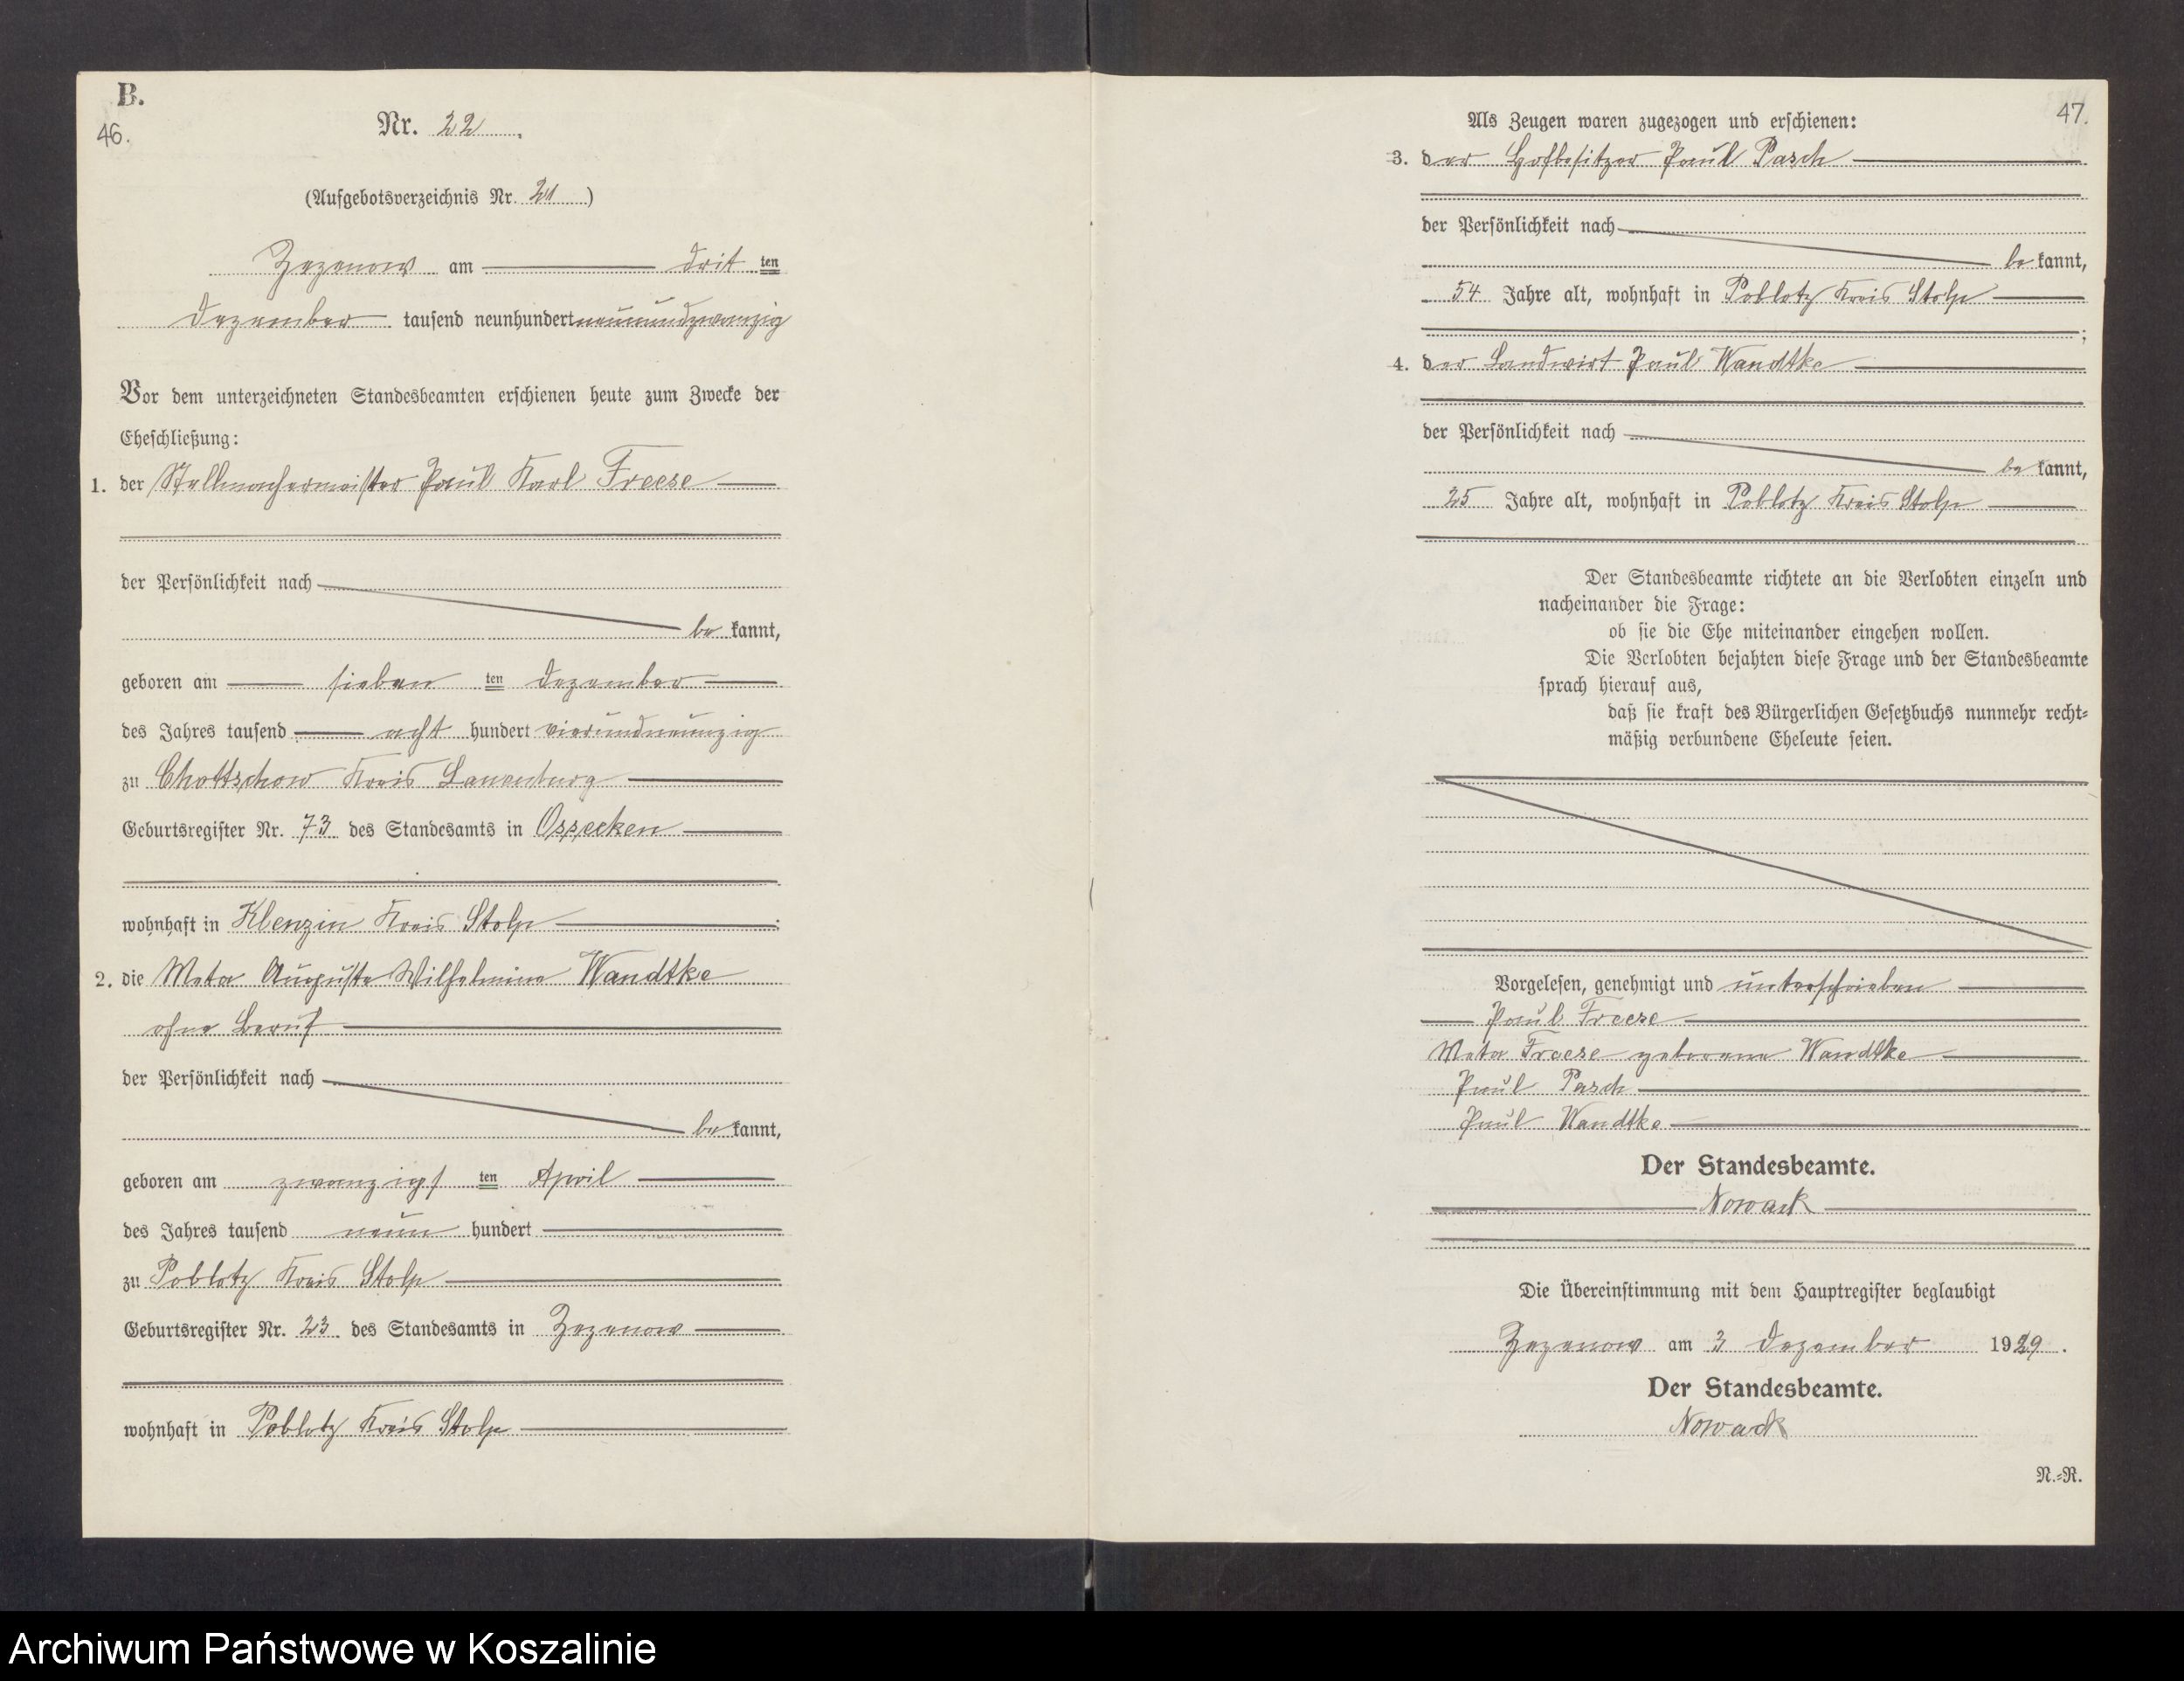 B.
46.
Nr. 22.
(Aufgebotsverzeichnis Nr. 21)
Zezenow am dritten
Dezember tausend neunhundert neunundzwanzig
Vor dem unterzeichneten Standesbeamten erschienen heute zum Zwecke der
Eheschließung:
1. der Stellmachermeister Paul Karl Freese
der Persönlichkeit nach
bekannt,
geboren am siebenten Dezember
des Jahres tausend acht hundert vierundneunzig
zu Chottschow Kreis Lauenburg
Geburtsregister Nr. 73 des Standesamts in Ossecken
wohnhaft in Klenzin Kreis Stolp;
2. die Meta Auguste Wilhelmine Wandtke
ohne Beruf
der Persönlichkeit nach
bekannt,
geboren am zwanzigsten April
des Jahres tausend neun hundert
zu Poblotz Kreis Stolp
Geburtsregister Nr. 23 des Standesamts in Zezenow
wohnhaft in Poblotz Kreis Stolp
47.
Als Zeugen waren zugezogen und erschienen:
3. der Hofbesitzer Paul Pasch
der Persönlichkeit nach
bekannt,
54 Jahre alt, wohnhaft in Poblotz Kreis Stolp
;
4. der Landwirt Paul Wandtke
der Persönlichkeit nach
bekannt,
25 Jahre alt, wohnhaft in Poblotz Kreis Stolp
Der Standesbeamte richtete an die Verlobten einzeln und
nacheinander die Frage:
ob sie die Ehe miteinander eingehen wollen.
Die Verlobten bejahten diese Frage und der Standesbeamte
sprach hierauf aus,
daß sie kraft des Bürgerlichen Gesetzbuchs nunmehr recht-
mäßig verbundene Eheleute seien.
Vorgelesen, genehmigt und unterschrieben
Paul Freese
Meta Freese geborene Wandtke
Paul Pasch
Paul Wandtke
Der Standesbeamte.
Nowack
Die Übereinstimmung mit dem Hauptregister beglaubigt
Zezenow am 3 Dezember 1929.
Der Standesbeamte.
Nowack
N.-R.
Archiwum Państwowe w Koszalinie